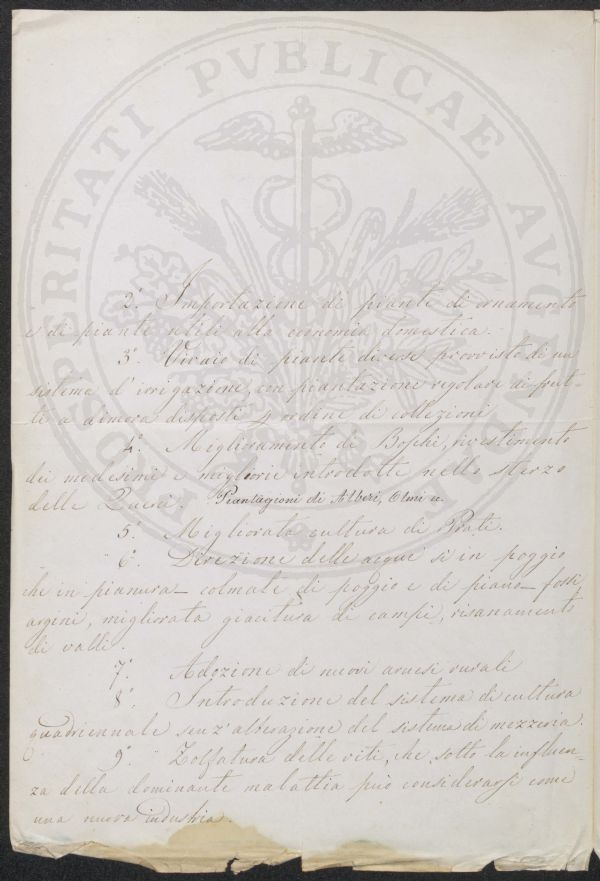 PROSPERITATI PVBLICAE AVGENDAE
2.° Importazione di piante di ornamento
e di piante utili alla economia domestica.
3.° Vivaio di piante diverse provvisto di un
sistema d'irrigazione, con piantazione regolare di frut-
ti a dimora disposti p ordine di collezioni
4.° Miglioramento di Boschi, rivestimento
dei medesimi e migliorie introdotte nello sterzo
delle Querci. Piantagioni di Alberi, Olmi ec.
5.° Migliorata cultura di Prati.
6.° Direzione delle acque sì in poggio
che in pianura_ colmate di poggio e di piano_ fossi
argini, migliorata giacitura di campi, risanamento
di valli.
7.° Adozione di nuovi arnesi rurali
8.° Introduzione del sistema di cultura
quadriennale senz'alterazione del sistema di mezzeria.
9.° Zolfatura delle viti, che sotto la influen-
za della dominante malattia può considerarsi come
una nuova industria.